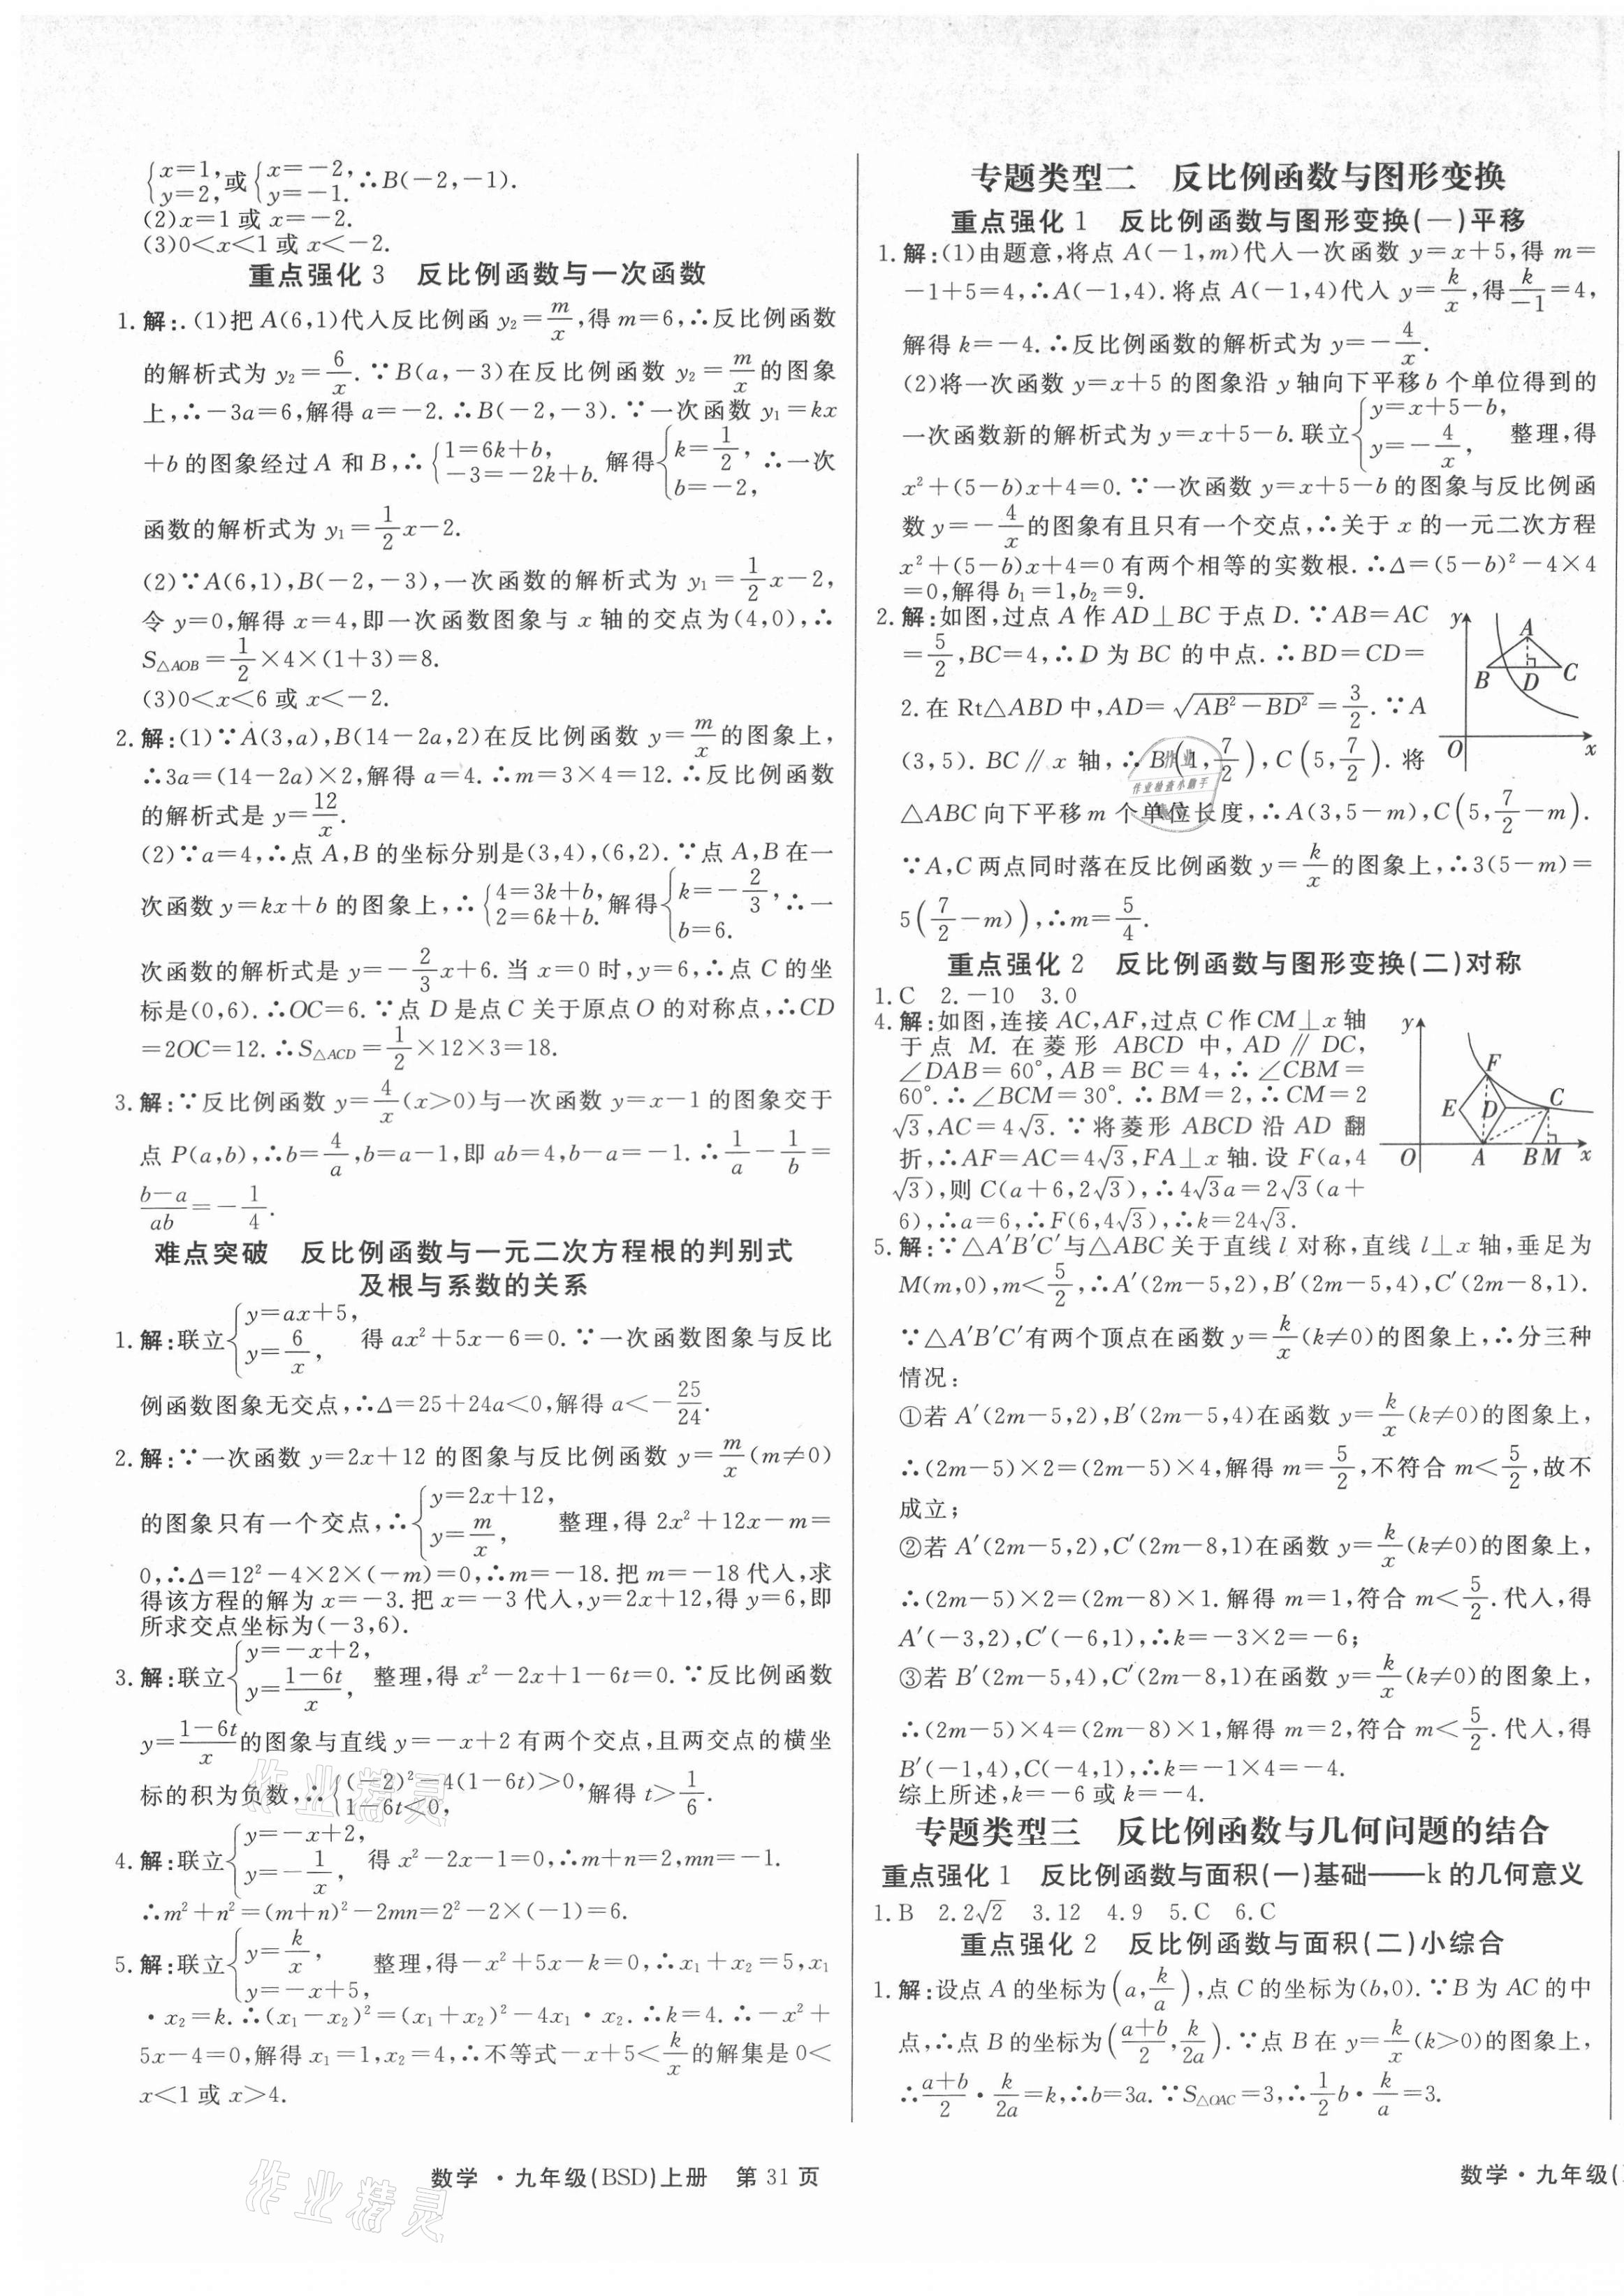 {x=1,y=2,或{x=-2,y=-1.∴B(-2,-1).
(2)x=1或x=-2.
(3)0<x<1或x<-2.
重点强化3 反比例函数与一次函数
1.解:.(1)把A(6,1)代入反比例函y₂=m/x,得m=6,∴反比例函数
的解析式为y₂=6/x.∵B(a,-3)在反比例函数y₂=m/x的图象
上,∴-3a=6,解得a=-2.∴B(-2,-3).∵一次函数y₁=kx
+b的图象经过A和B,∴{1=6k+b,-3=-2k+b.解得{k=1/2,b=-2,∴一次
函数的解析式为y₁=1/2x-2.
(2)∵A(6,1),B(-2,-3),一次函数的解析式为y₁=1/2x-2,
令y=0,解得x=4,即一次函数图象与x轴的交点为(4,0),∴
S△AOB=1/2×4×(1+3)=8.
(3)0<x<6或x<-2.
2.解:(1)∵A(3,a),B(14-2a,2)在反比例函数y=m/x的图象上,
∴3a=(14-2a)×2,解得a=4.∴m=3×4=12.∴反比例函数
的解析式是y=12/x.
(2)∵a=4,∴点A,B的坐标分别是(3,4),(6,2).∵点A,B在一
次函数y=kx+b的图象上,∴{4=3k+b,2=6k+b.解得{k=-2/3,b=6.∴一
次函数的解析式是y=-2/3x+6.当x=0时,y=6,∴点C的坐
标是(0,6).∴OC=6.∵点D是点C关于原点O的对称点,∴CD
=2OC=12.∴S△ACD=1/2×12×3=18.
3.解:∵反比例函数y=4/x(x>0)与一次函数y=x-1的图象交于
点P(a,b),∴b=4/a,b=a-1,即ab=4,b-a=-1.∴1/a-1/b=
(b-a)/ab=-1/4.
难点突破 反比例函数与一元二次方程根的判别式
及根与系数的关系
1.解:联立{y=ax+5,y=6/x,得ax²+5x-6=0.∵一次函数图象与反比
例函数图象无交点,∴Δ=25+24a<0,解得a<-25/24.
2.解:∵一次函数y=2x+12的图象与反比例函数y=m/x(m≠0)
的图象只有一个交点,∴{y=2x+12,y=m/x,整理,得2x²+12x-m=
0,∴Δ=12²-4×2×(-m)=0,∴m=-18.把m=-18代入,求
得该方程的解为x=-3.把x=-3代入,y=2x+12,得y=6,即
所求交点坐标为(-3,6).
3.解:联立{y=-x+2,y=(1-6t)/x,整理,得x²-2x+1-6t=0.∵反比例函数
y=(1-6t)/x的图象与直线y=-x+2有两个交点,且两交点的横坐
标的积为负数,∴{(-2)²-4(1-6t)>0,1-6t<0,解得t>1/6.
4.解:联立{y=-x+2,y=-1/x,得x²-2x-1=0,∴m+n=2,mn=-1.
∴m²+n²=(m+n)²-2mn=2²-2×(-1)=6.
5.解:联立{y=k/x,y=-x+5,整理,得-x²+5x-k=0,∴x₁+x₂=5,x₁
·x₂=k.∴(x₁-x₂)²=(x₁+x₂)²-4x₁·x₂.∴k=4.∴-x²+
5x-4=0,解得x₁=1,x₂=4,∴不等式-x+5<k/x的解集是0<
x<1或x>4.
数学·九年级(BSD)上册 第31页
专题类型二 反比例函数与图形变换
重点强化1 反比例函数与图形变换(一)平移
1.解:(1)由题意,将点A(-1,m)代入一次函数y=x+5,得m=
-1+5=4,∴A(-1,4).将点A(-1,4)代入y=k/x,得k/-1=4,
解得k=-4.∴反比例函数的解析式为y=-4/x.
(2)将一次函数y=x+5的图象沿y轴向下平移b个单位得到的
一次函数新的解析式为y=x+5-b.联立{y=x+5-b,y=-4/x,整理,得
x²+(5-b)x+4=0.∵一次函数y=x+5-b的图象与反比例函
数y=-4/x的图象有且只有一个交点,∴关于x的一元二次方程
x²+(5-b)x+4=0有两个相等的实数根.∴Δ=(5-b)²-4×4
=0,解得b₁=1,b₂=9.
2.解:如图,过点A作AD⊥BC于点D.∵AB=AC
=5/2,BC=4,∴D为BC的中点.∴BD=CD=
2.在Rt△ABD中,AD=√(AB²-BD²)=3/2.∵A
(3,5).BC∥x轴,∴B(1,7/2),C(5,7/2).将
△ABC向下平移m个单位长度,∴A(3,5-m),C(5,7/2-m).
∵A,C两点同时落在反比例函数y=k/x的图象上,∴3(5-m)=
5(7/2-m)),∴m=5/4.
y A B D C O x
重点强化2 反比例函数与图形变换(二)对称
1.C 2.-10 3.0
4.解:如图,连接AC,AF,过点C作CM⊥x轴
于点M.在菱形ABCD中,AD∥DC,
∠DAB=60°,AB=BC=4,∴∠CBM=
60°.∴∠BCM=30°.∴BM=2,∴CM=2
√3,AC=4√3.∵将菱形ABCD沿AD翻
折,∴AF=AC=4√3,FA⊥x轴.设F(a,4
√3),则C(a+6,2√3),∴4√3a=2√3(a+
6),∴a=6,∴F(6,4√3),∴k=24√3.
y F E D C O A B M x
5.解:∵△A′B′C′与△ABC关于直线l对称,直线l⊥x轴,垂足为
M(m,0),m<5/2,∴A′(2m-5,2),B′(2m-5,4),C′(2m-8,1).
∵△A′B′C′有两个顶点在函数y=k/x(k≠0)的图象上,∴分三种
情况:
①若A′(2m-5,2),B′(2m-5,4)在函数y=k/x(k≠0)的图象上,
∴(2m-5)×2=(2m-5)×4,解得m=5/2,不符合m<5/2,故不
成立;
②若A′(2m-5,2),C′(2m-8,1)在函数y=k/x(k≠0)的图象上,
∴(2m-5)×2=(2m-8)×1.解得m=1,符合m<5/2.代入,得
A′(-3,2),C′(-6,1),∴k=-3×2=-6;
③若B′(2m-5,4),C′(2m-8,1)在函数y=k/x(k≠0)的图象上,
∴(2m-5)×4=(2m-8)×1,解得m=2,符合m<5/2.代入,得
B′(-1,4),C(-4,1),∴k=-1×4=-4.
综上所述,k=-6或k=-4.
专题类型三 反比例函数与几何问题的结合
重点强化1 反比例函数与面积(一)基础——k的几何意义
1.B 2.2√2 3.12 4.9 5.C 6.C
重点强化2 反比例函数与面积(二)小综合
1.解:设点A的坐标为(a,k/a),点C的坐标为(b,0).∵B为AC的中
点,∴点B的坐标为((a+b)/2,k/2a).∵点B在y=k/x(k>0)的图象上,
∴(a+b)/2·k/2a=k,∴b=3a.∵S△OAC=3,∴1/2b·k/a=3.
数学·九年级(
作业精灵
作业精灵
作业检查小助手